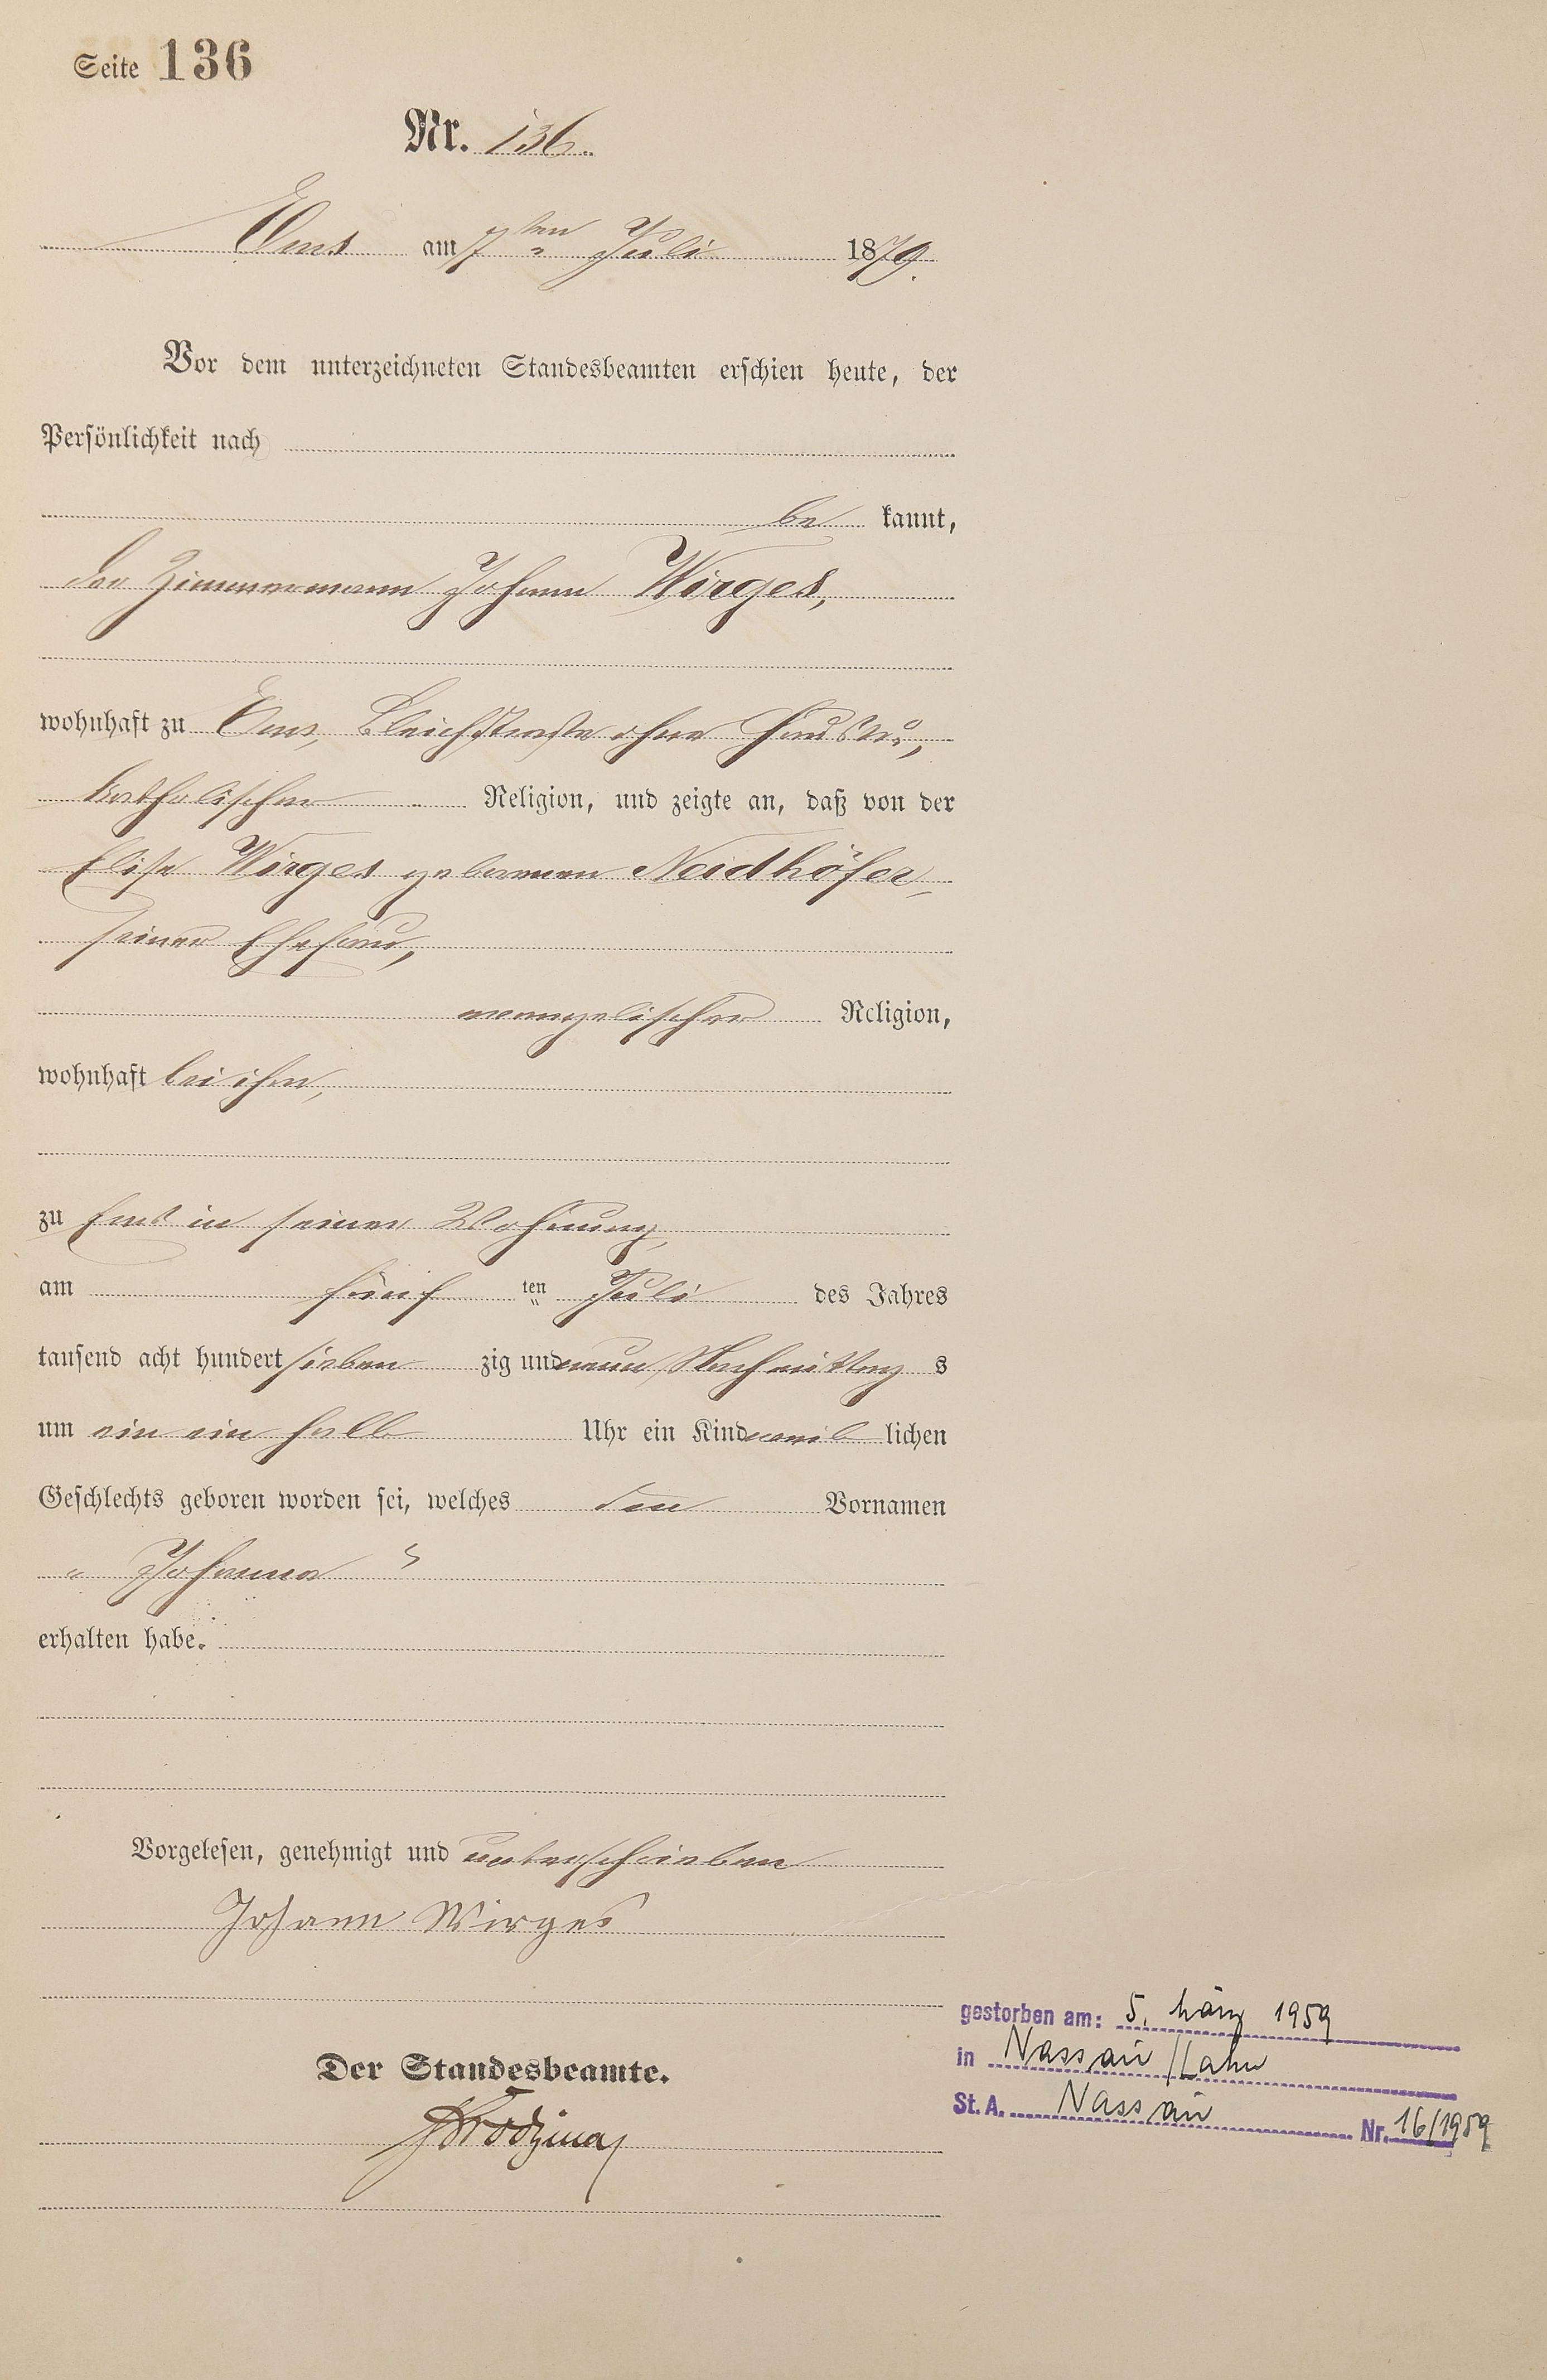 Seite 136
Nr. 136.
Ems am 7ten Juli 1879.
Vor dem unterzeichneten Standesbeamten erschien heute, der
Persönlichkeit nach
be kannt,
der Zimmermann Johann Wirges,
wohnhaft zu Ems, Bleichstraße ohne Haus No,
katholischer Religion, und zeigte an, daß von der
Elise Wirges geborenen Neidhöfer,
seiner Ehefrau,
evangelischer Religion,
wohnhaft bei ihm,
zu Ems in seiner Wohnung,
am fünf ten Juli des Jahres
tausend acht hundert sieben zig und neun, Nachmittag s
um ein ein halb Uhr ein Kind weib lichen
Geschlechts geboren worden sei, welches den Vornamen
„ Johanna "
erhalten habe.
Vorgelesen, genehmigt und unterschrieben
Johann Wirges
Der Standesbeamte.
gestorben am: 5. März 1959
in Nassau/Lahn
St. A. Nassau Nr. 16/1959